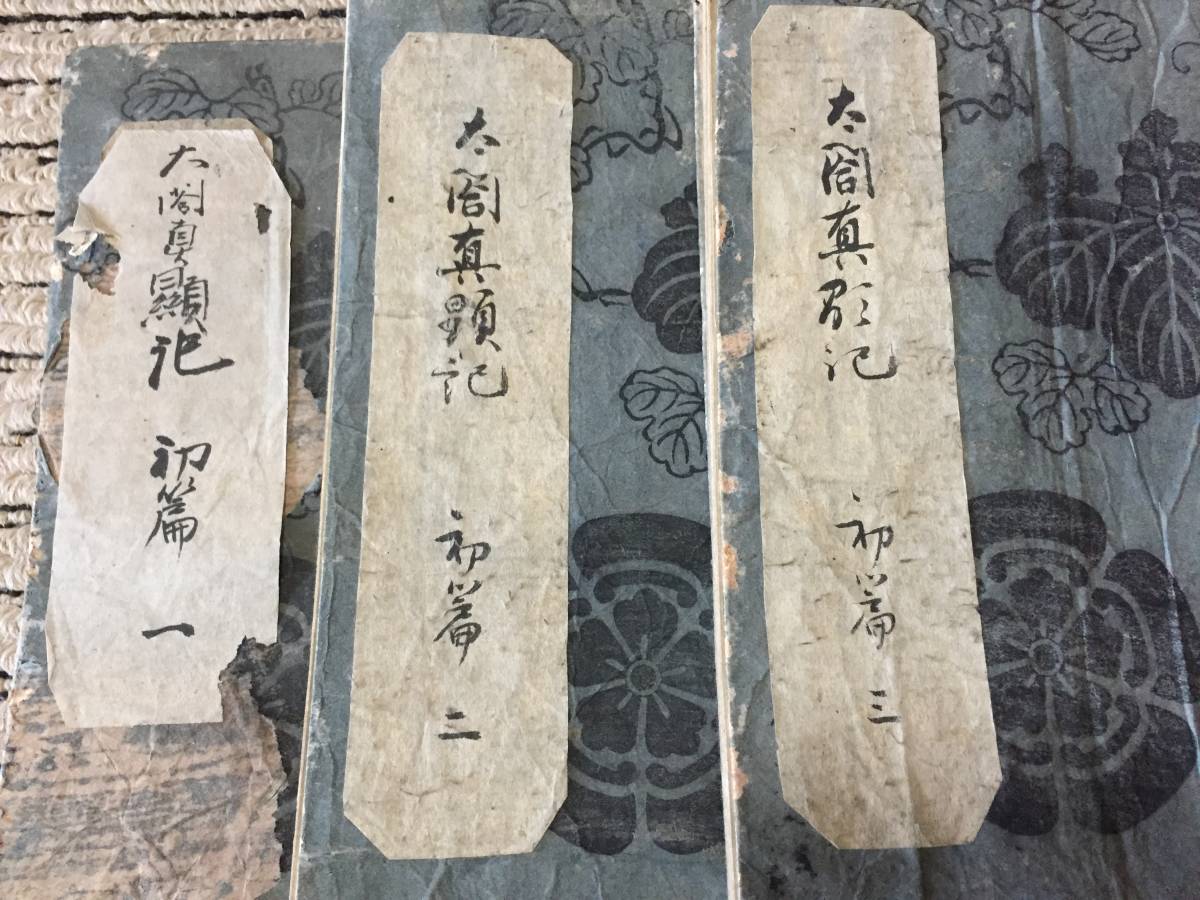 太閤真顯記 初篇 一
太閤真顕記 初篇 二
太閤真顕記 初篇 三